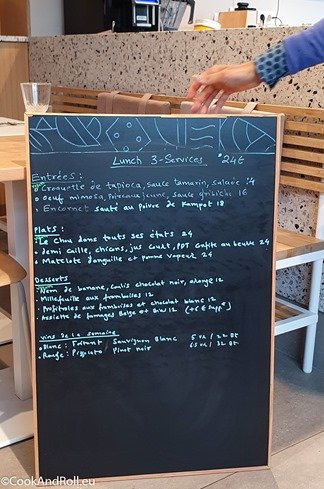 Lunch 3-Services 24€
Entrées :
Croquette de tapioca, sauce tamarin, salade 14
Oeuf mimosa, poireaux, sauce gribiche 16
Encornet sauté au poivre de Kampot 18
Plats :
Le Chou dans touts ses états 24
demi caille, chicons, jus court, PDT confite au beurre 24
Matelote d'anguille et pomme vapeur 24
Desserts
de banane, coulis chocolat noir, orange 12
Millefeuille aux framboises 12
Profiteroles aux framboises et chocolat blanc 12
Assiette de fromages Belge et Bio 12 (+6 € supp)
vins de la semaine
Blanc : Sauvignon Blanc 22 Bt
Rouge : Pinot noir 32 Bt
©CookAndRoll.eu